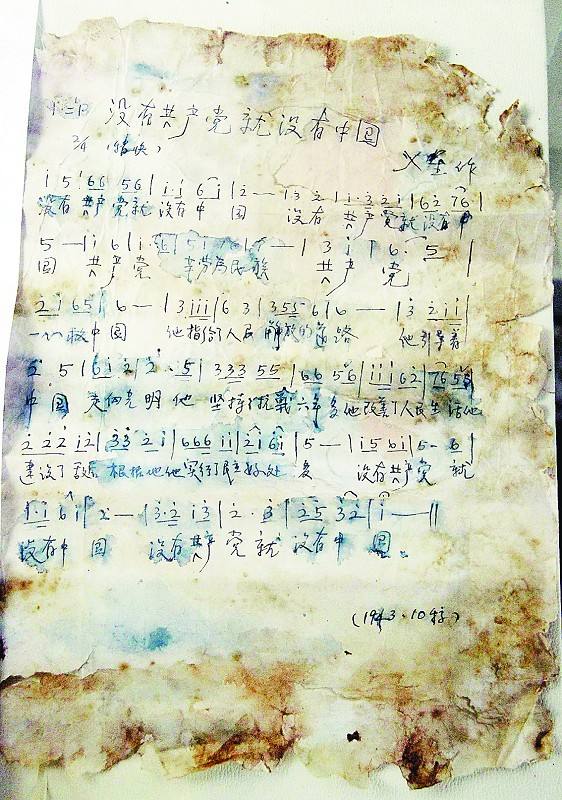 没有共产党就没有中国
2/4 (稍快)
火星 作
i 5 66 56 | i·i 6 i | 2 — | i3 2 | i·3 2i | 62 76 |
没有 共产党就 没有中 国 没有 共产党就没有中
5 — | i 6 | i· | 3 i | 6· 5 |
国 共产党 辛劳为民族 共产党
2 i 65 | 6 — | 3 iii | 6 3 | 355 6 | 6 — | 3 2 i i |
一心救中国 他指给了人民 解放的道路 他引导着
2 5 | 6i 2 | 2· 5 | 333 55 | 66 56 | iii 62 | 76 55 |
中国 走向光明 他 坚持了抗战六年多他改善了人民生活他
2 22 i2 | 33 2 i | 666 ii | 2i 6i | 5 — | i5 6i | 5· 6 |
建设了敌后 根据地他实行了民主好处多 没有共产党 就
i·i 6i | 2 — | 3·2 i3 | 2· 3 | 25 32 | i — ||
没有中 国 没有共产党就没有中 国。
(1943·10稿)